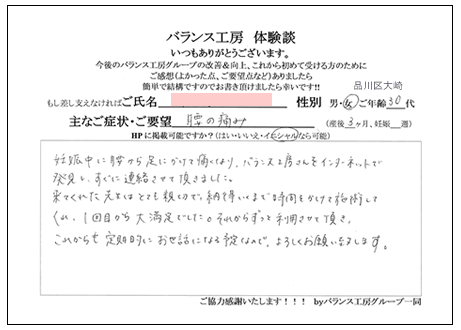 バランス工房 体験談
いつもありがとうございます。
今後のバランス工房グループの改善&向上、これから初めて受ける方のために
ご感想(よかった点、ご要望点など)ありましたら
簡単で結構ですのでお書き頂けましたら幸いです!!
品川区大崎
もし差し支えなければご氏名 性別 男・女 ご年齢30代
主なご症状・ご要望 腰の痛み (産後3ヶ月、妊娠 週)
HPに掲載可能ですか?(はい・いいえ・イニシャルなら可能)
妊娠中に腰から足にかけて痛くなり、バランス工房さんをインターネットで
発見し、すぐに連絡させて頂きました。
来てくれた先生はとても親切で、納得いくまで時間をかけて施術して
くれ、1回目から大満足でした。それからずっと利用させて頂き、
これからも定期的にお世話になる予定なので、よろしくお願い致します。
ご協力感謝いたします!!! byバランス工房グループ一同